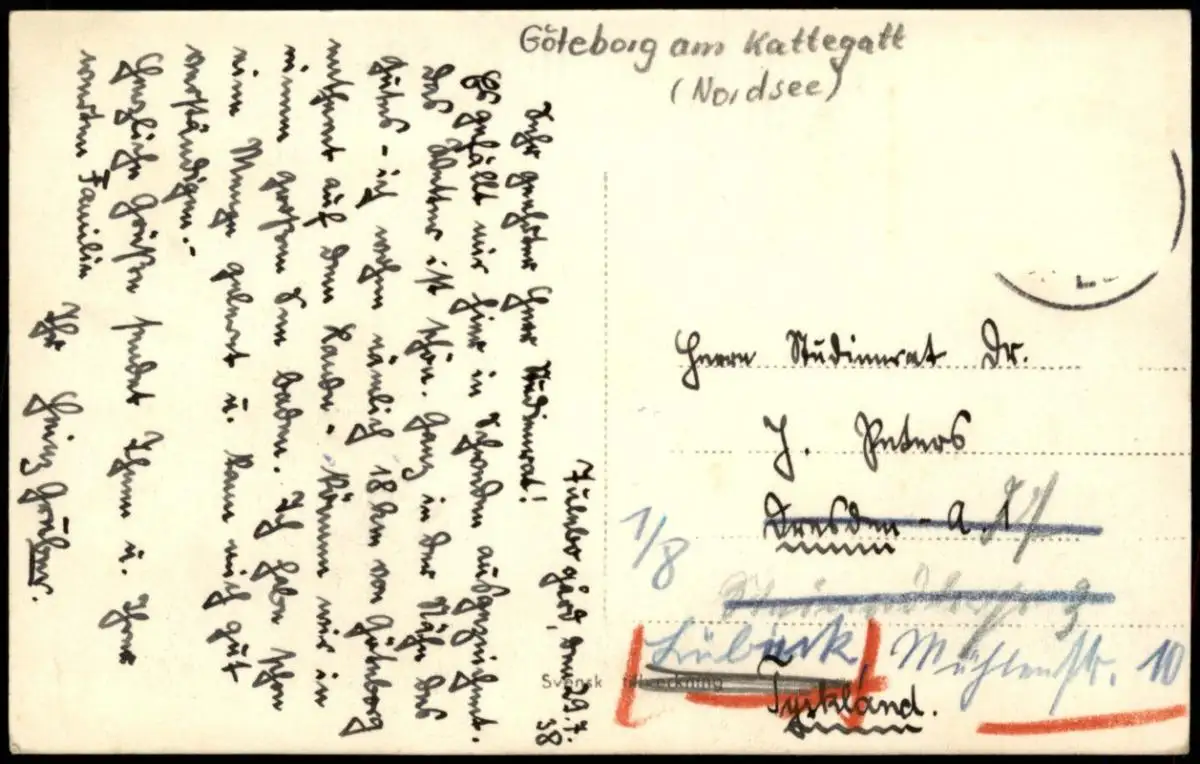 Göteborg am Kattegatt
(Nordsee)
Tulebo gård, den 29.7.
38
Sehr geehrter Herr Studienrat!
Es gefällt mir hier in Schweden ausgezeichnet.
Das Wetter ist schön. Ganz in der Nähe des
Gutes - ich wohne nämlich 18 km von Göteborg
entfernt auf dem Lande - können wir in
einem großen See baden. Ich habe schon
eine Menge gelernt u. kann mich gut
verständigen.-
Herzliche Grüße sendet Ihnen u. Ihrer
werten Familie
Ihr Heinz
Herrn Studienrat Dr.
J. Peters
Dresden - A.
1/8
Lübeck, Mühlenstr. 10
Tyskland.
Svensk tillverkning